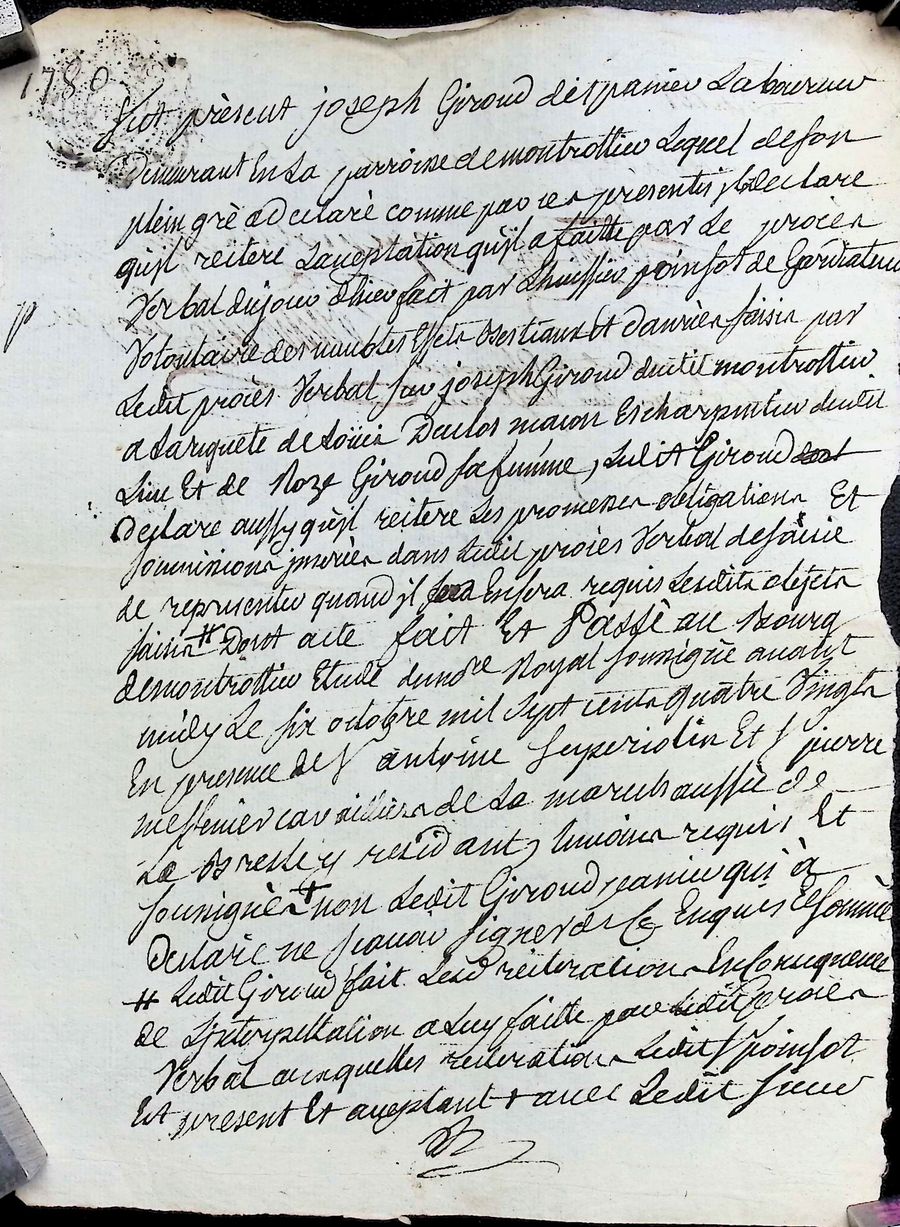 1780
fut présent joseph Giroud dit panier Laboureur
Demeurant En La parroisse de montrottier Lequel de son
plein gré a Declaré comme par ces présentes jl declare
qu'jl reitere L'aceptation qu'jl a faitte par Le procés
Verbal du jour d'hier fait par L'huissier poinsot de Gardiateur
Volontaire des meubles Effets Bestiaux Et danrées saisis par
Ledit procés Verbal sur joseph Giroud dudit montrottier
a La requete de Loüis Duclos macon Et charpentier dudit
Lieu Et de Roze Giroud sa femme, Ledit Giroud
Declare aussy qu'jl reitere Les promesses obligations Et
soumissions jnserées dans Ledit procés Verbal de saisie
de representer quand jl En sera requis Lesdits objets
saisis # Dont acte fait Et Passé au Bourg
de montrottier Etude du nore Royal soussigné avant
midy Le six octobre mil sept cents quatre Vingts
En presence de Sr antoine Et Sr pierre
messenier cavailliers de La marechaussée de
La Bresle y residant, temoins requis Et
soussignés + non Ledit Giroud panier qui a
Declaré ne scavoir signer de ce Enquis Et sommé
# Ledit Giroud fait Lesd reiterations En Consequence
de L'interpellation a Luy faitte par Ledit procés
Verbal auxquelles reiterations Ledit Sr poinsot
Est présent Et aceptant + avec Ledit sieur